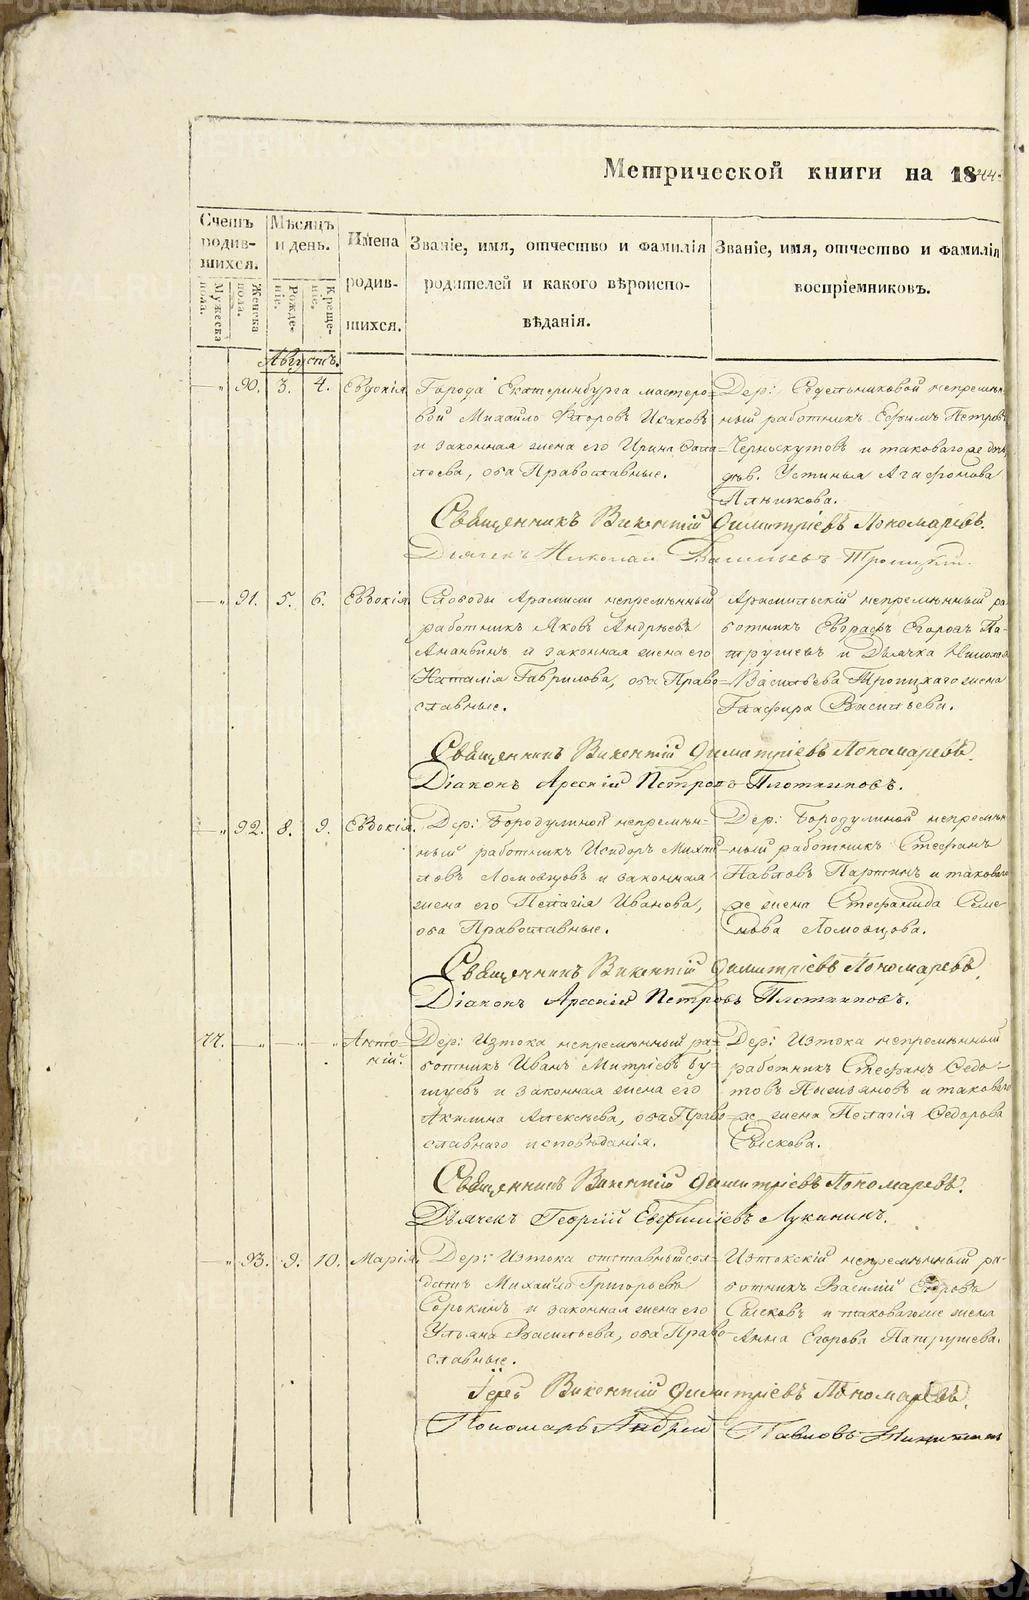 Метрической книги на 1844.
Счетъ родив- шихся.
Мѣсяцъ и день.
Имена родив- шихся.
Званіе, имя, отчество и фамилія родителей и какого вѣроиспо- вѣданія.
Званіе, имя, отчество и фамилія воспріемниковъ.
Мужеска пола.
Женска пола.
Рожде- ніе.
Креще- ніе.
Августъ.
90. 3. 4. Евдокія
Города Екатеринбурга мастеро-
вой Михайло Ѳедоровъ Исаковъ
и законная жена его Ирина
оба Православные.
Дер: Седельниковой непремѣн-
ный работникъ Ефимъ Петровъ
Черноскутовъ и таковаго же
Устинья Агафонова
Священникъ Викентій Димитріевъ Пономаревъ.
Дьячекъ Николай Васильевъ Троицкій.
91. 5. 6. Евдокія
Слободы Арамили непремѣнный
работникъ Яковъ Андрѣевъ
Ананьинъ и законная жена его
Наталія Гаврилова, оба Право-
славные.
Арамильскій непремѣнный ра-
ботникъ Евграфъ Егоровъ Па-
трушевъ и Дьячка Николая
Васильева Троицкаго жена
Глафира Васильева.
Священникъ Викентій Димитріевъ Пономаревъ.
Діаконъ Арсеній Петровъ Плотниковъ.
92. 8. 9. Евдокія.
Дер: Бородулиной непремѣн-
ный работникъ Исидоръ Михай
ловъ Ломовцовъ и законная
жена его Пелагія Иванова,
оба Православные.
Дер: Бородулиной непремѣн
ный работникъ Стефанъ
Павловъ Партинъ и таковаго
же жена Стефанида Семе
нова Ломовцова.
Священникъ Викентій Димитріевъ Пономаревъ.
Діаконъ Арсеній Петровъ Плотниковъ.
77. Анто-
ній.
Дер: Изтока непремѣнный ра-
ботникъ Иванъ Митріевъ Бу-
шуевъ и законная жена его
Акилина Алексѣева, оба Право-
славнаго исповѣданія.
Дер: Изтока непремѣнный
работникъ Стефанъ Ѳедо-
товъ и таковаго
же жена Пелагія Ѳедорова
Сыскова.
Священникъ Викентій Димитріевъ Пономаревъ.
Дьячекъ Георгій Евфиміевъ Лукининъ.
93. 9. 10. Марія.
Дер: Изтока отставный сол-
датъ Михайло Григорьевъ
Сорокинъ и законная жена его
Ульяна Васильева, оба Право
славные.
Изтокскій непремѣнный ра-
ботникъ Василій
Сысковъ и таковаго же жена
Анна Егорова Патрушева.
Іерей Викентій Димитріевъ Пономаревъ.
Пономарь Андрей Павловъ
METRIKI.GASO-URAL.RU